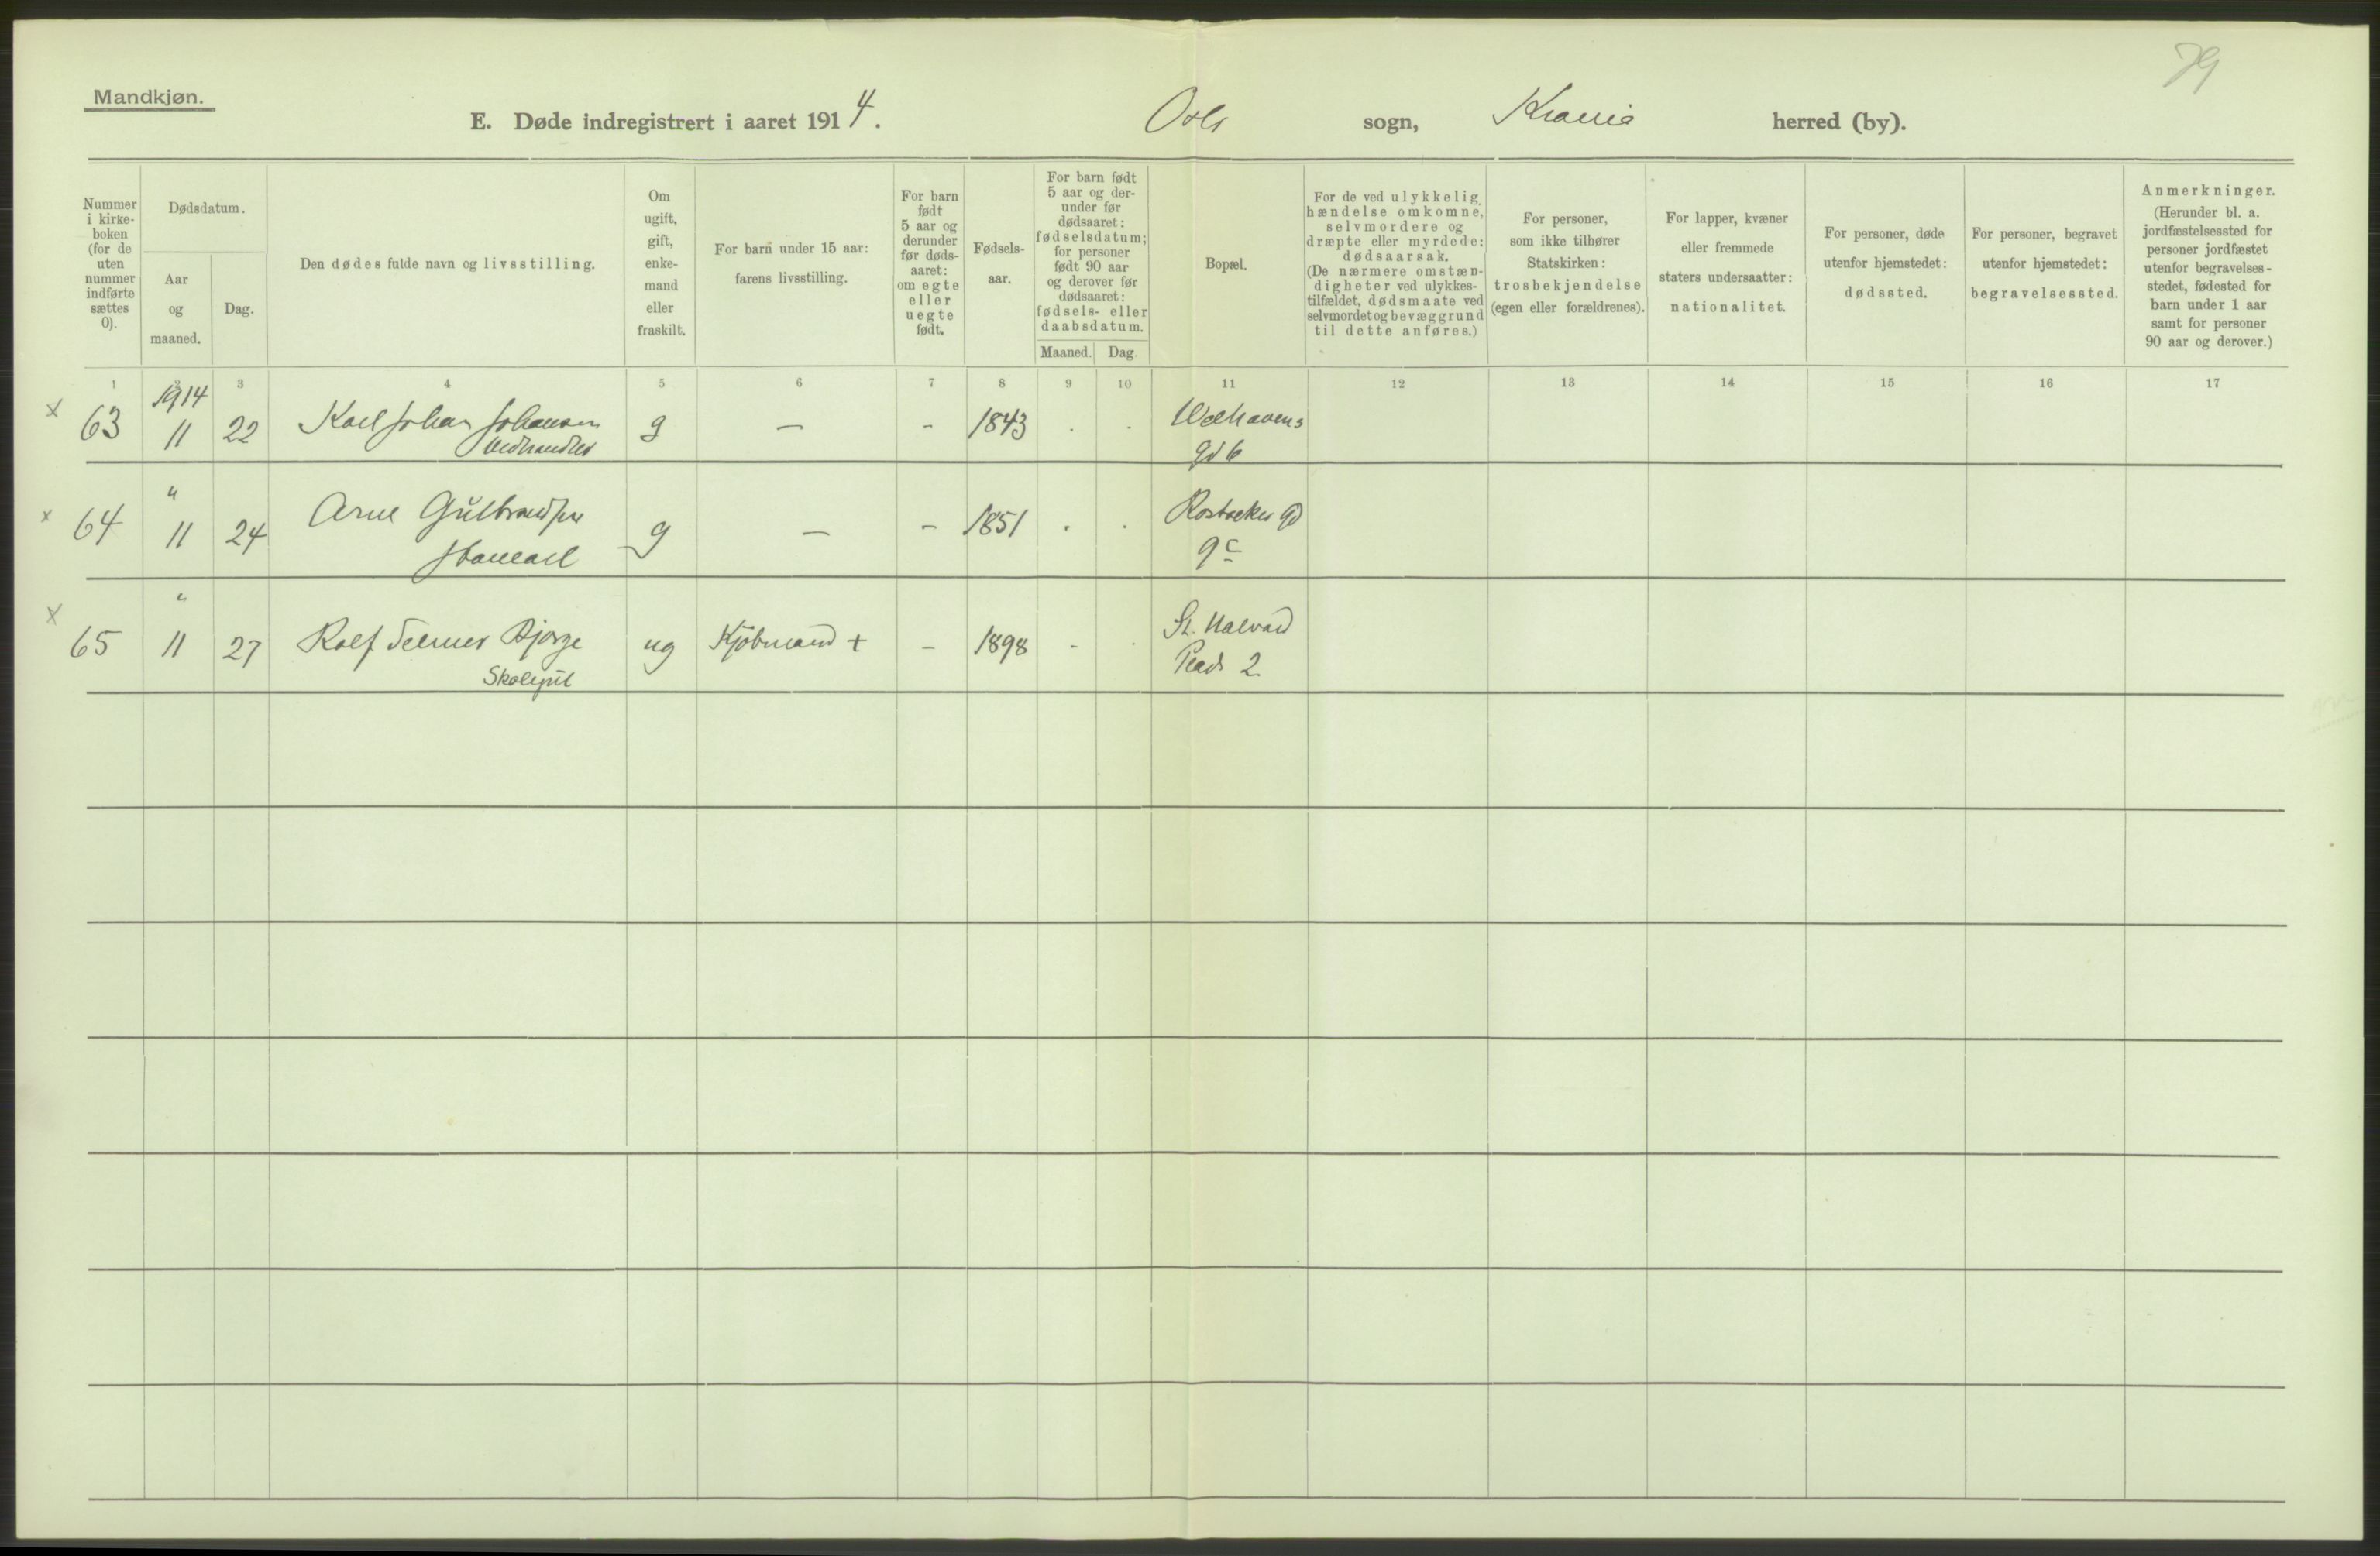 79
Mandkjøn.
E. Døde indregistrert i aaret 1914. Oslo sogn, Kr.ania herred (by).
Nummer i kirke- boken (for de uten nummer indførte sættes 0).
Dødsdatum.
Aar og maaned.
Dag.
Den dødes fulde navn og livsstilling.
Om ugift, gift, enke- mand eller fraskilt.
For barn under 15 aar: farens livsstilling.
For barn født 5 aar og derunder før døds- aaret: om egte eller uegte født.
Fødsels- aar.
For barn født 5 aar og der- under før dødsaaret: fødselsdatum; for personer født 90 aar og derover før dødsaaret: fødsels- eller daabsdatum.
Maaned. Dag.
Bopæl.
For de ved ulykkelig hændelse omkomne, selvmordere og dræpte eller myrdede: dødsaarsak. (De nærmere omstæn- digheter ved ulykkes- tilfældet, dødsmaate ved selvmordet og bevæggrund til dette anføres.)
For personer, som ikke tilhører Statskirken: trosbekjendelse (egen eller forældrenes).
For lapper, kvæner eller fremmede staters undersaatter: nationalitet.
For personer, døde utenfor hjemstedet: dødssted.
For personer, begravet utenfor hjemstedet: begravelsessted.
Anmerkninger. (Herunder bl. a. jordfæstelsessted for personer jordfæstet utenfor begravelses- stedet, fødested for barn under 1 aar samt for personer 90 aar og derover.)
1 2 3 4 5 6 7 8 9 10 11 12 13 14 15 16 17
1914
x 63 11 22 Karl Johan Johansen g — - 1843 . . Welhavens
Vedhandler gd 6
"
x 64 11 24 Arne Gulbrandsen g — - 1851 . . Rostocker gd
9c
"
x 65 11 27 Rolf Bjorge ug Kjøbmand + - 1898 - . St. Halvard
Skolegut Plads 2.